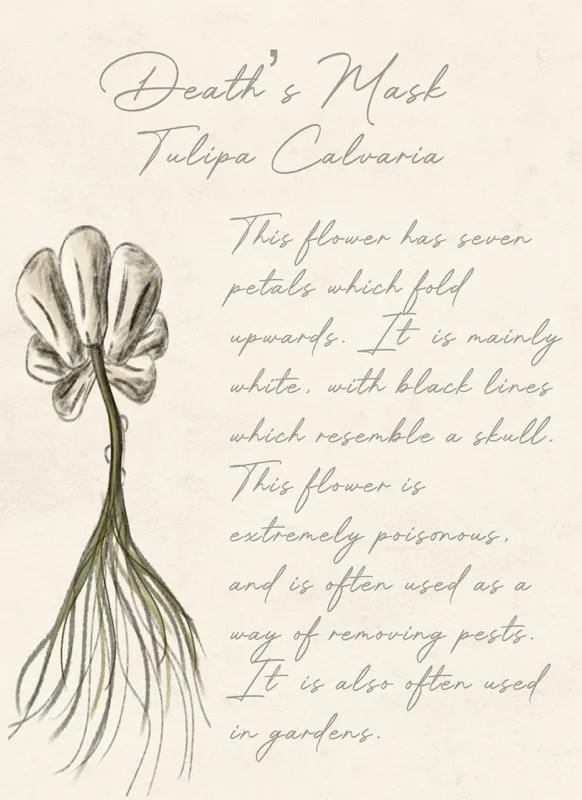 Death's Mask
Tulipa Calvaria
This flower has seven
petals which fold
upwards. It is mainly
white, with black lines
which resemble a skull.
This flower is
extremely poisonous,
and is often used as a
way of removing pests.
It is also often used
in gardens.